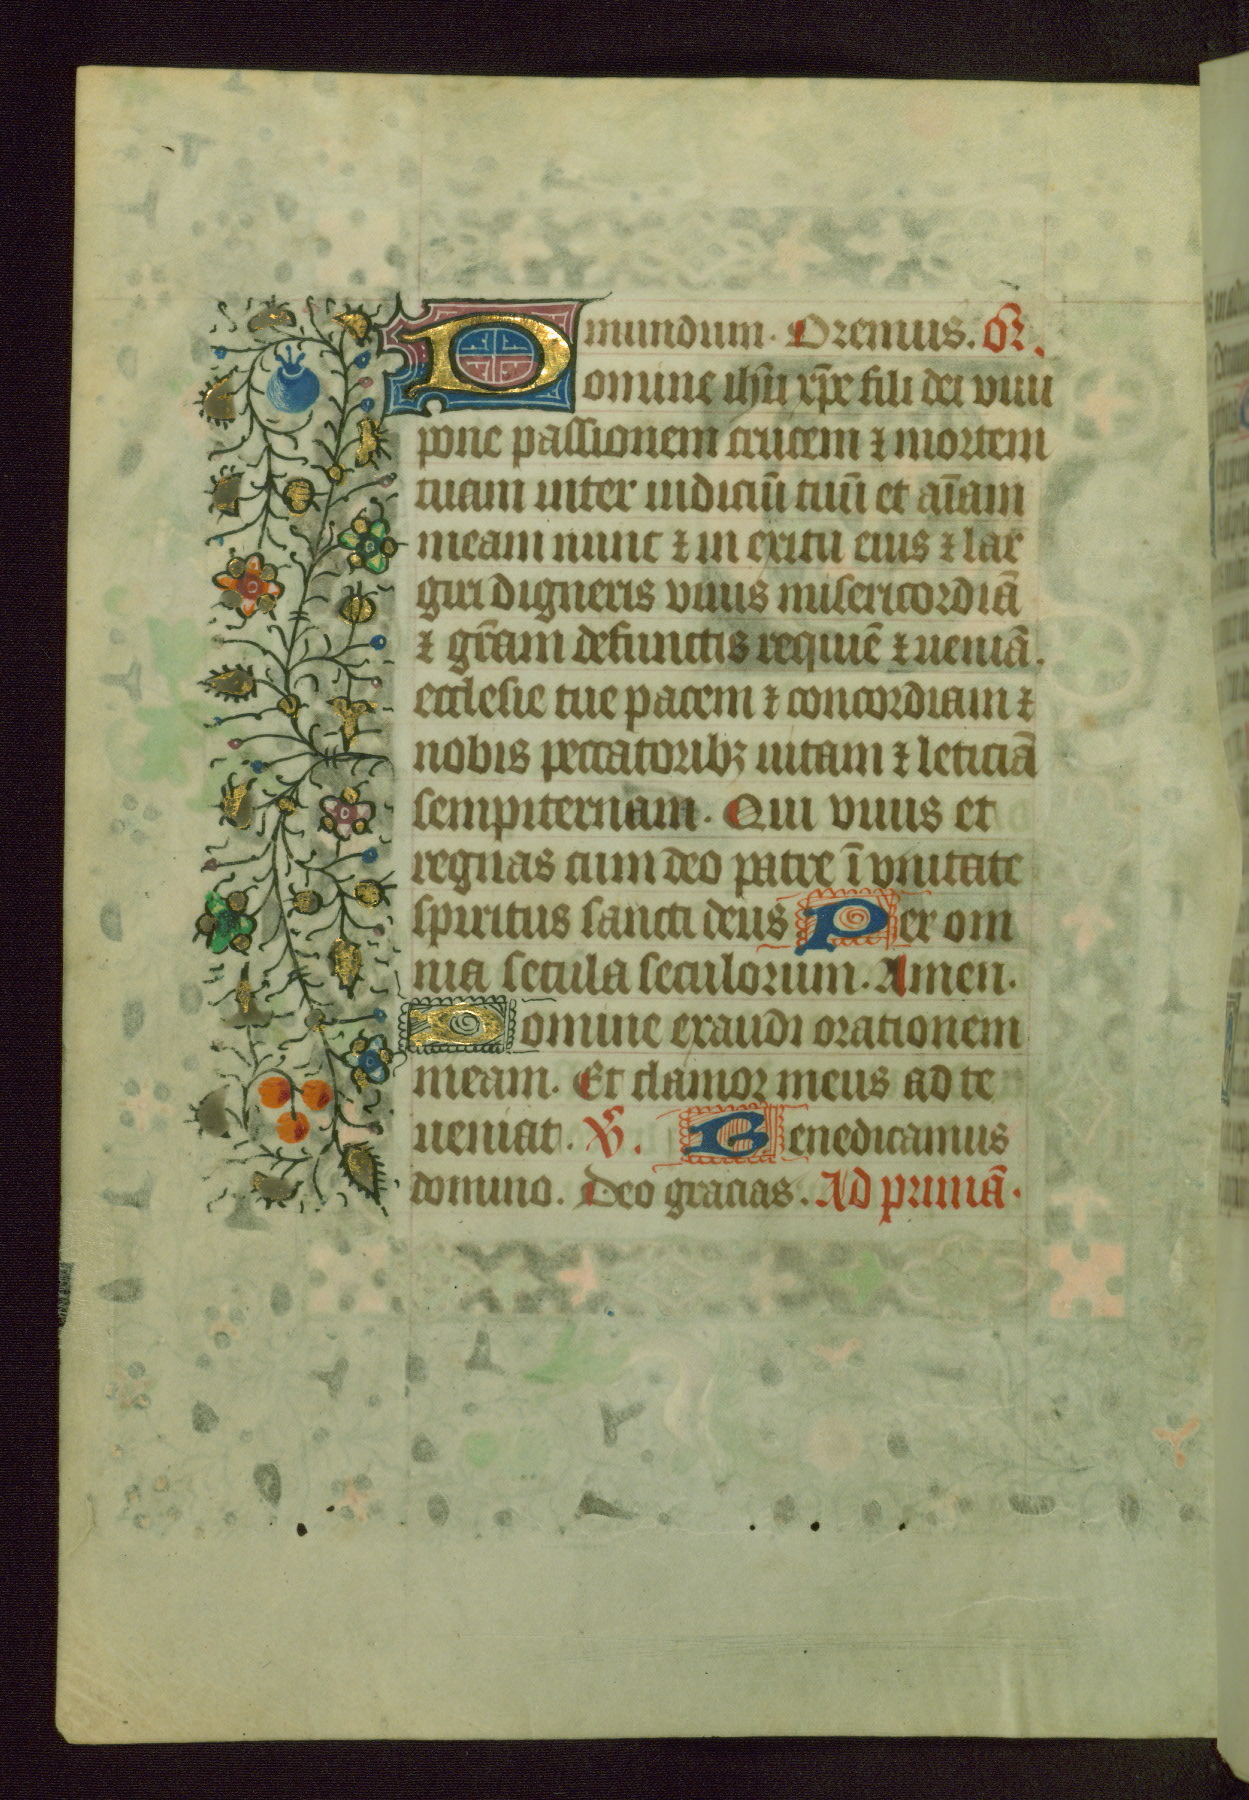 mundum. Oremus. Or̃.
Domine ihũ xp̃e fili dei viui
pone passionem crucem ⁊ mortem
tuam inter iudiciũ tuũ et aĩam
meam nunc ⁊ in exitu eius ⁊ lar
giri digneris viuis misericordiã
⁊ gr̃am defunctis requiẽ ⁊ ueniã.
ecclesie tue pacem ⁊ concordiam ⁊
nobis peccatoribꝫ uitam ⁊ leticiã
sempiternam. Qui viuis et
regnas cum deo patre ĩ vnitate
spiritus sancti deus Per om
nia secula seculorum. Amen.
Domine exaudi orationem
meam. Et clamor meus ad te
ueniat. V̕. Benedicamus
domino. Deo gracias. Ad primã.